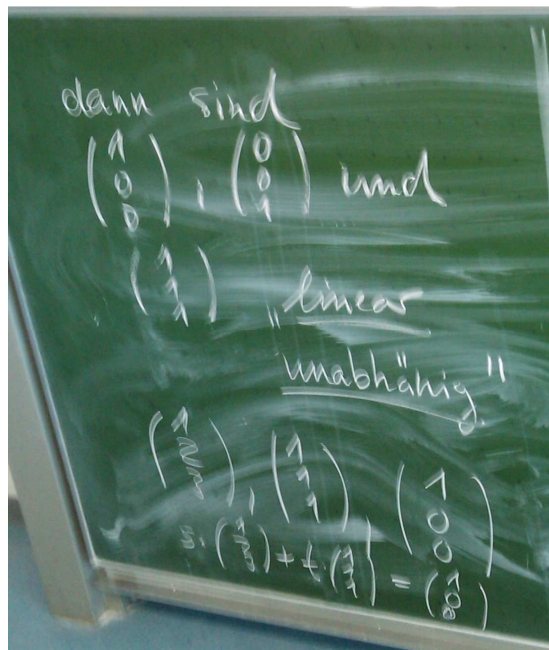 dann sind
(1 0 0) , (0 0 1) und
(1 1 1) „linear
unabhänig"
(1 2 2) , (1 1 1) (1 0 0)
s·(1 2 2) + t·(1 1 1) = (1 0 0)